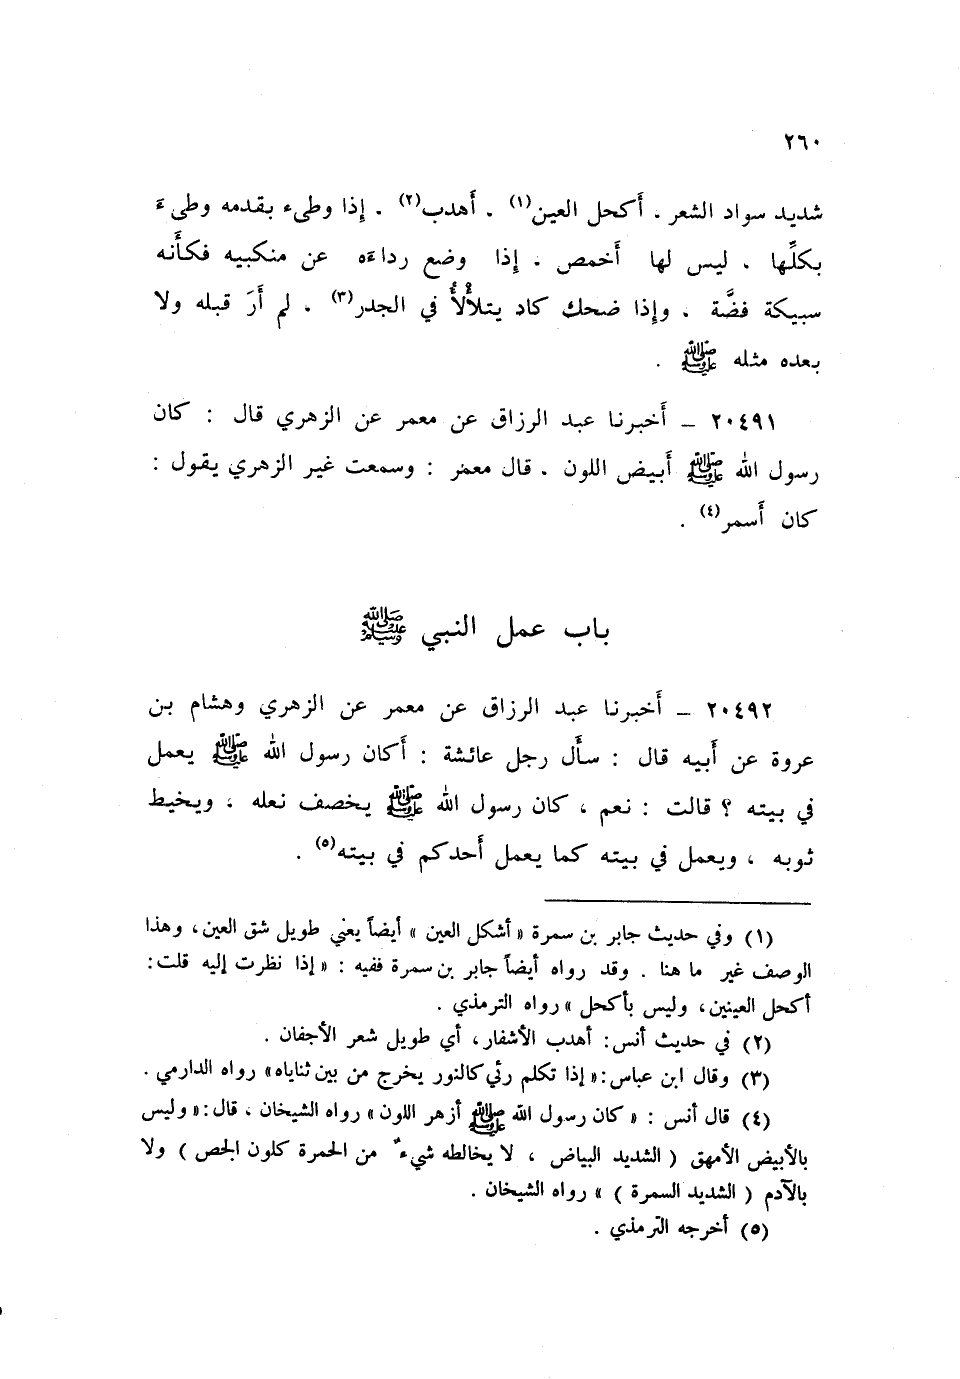 ٢٦٠
شديد سواد الشعر . أكحل العين(١) . أهدب(٢) . إذا وطىء بقدمه وطىء
بكلِّها . ليس لها أخمص . إذا وضع رداءه عن منكبيه فكأنه
سبيكة فضَّة . وإذا ضحك كاد يتلألأُ في الجدر(٣) . لم أَرَ قبله ولا
بعده مثله ﷺ .
٢٠٤٩١ – أخبرنا عبد الرزاق عن معمر عن الزهري قال : كان
رسول الله ﷺ أبيض اللون . قال معمر : وسمعت غير الزهري يقول :
كان أسمر(٤) .
باب عمل النبي ﷺ
٢٠٤٩٢ – أخبرنا عبد الرزاق عن معمر عن الزهري وهشام بن
عروة عن أبيه قال : سأل رجل عائشة : أكان رسول الله ﷺ يعمل
في بيته ؟ قالت : نعم ، كان رسول الله ﷺ يخصف نعله ، ويخيط
ثوبه ، ويعمل في بيته كما يعمل أحدكم في بيته(٥) .
(١) وفي حديث جابر بن سمرة « أشكل العين » أيضاً يعني طويل شق العين، وهذا
الوصف غير ما هنا . وقد رواه أيضاً جابر بن سمرة ففيه : « إذا نظرت إليه قلت:
أكحل العينين، وليس بأكحل » رواه الترمذي .
(٢) في حديث أنس: أهدب الأشفار، أي طويل شعر الأجفان .
(٣) وقال ابن عباس:« إذا تكلم رئي كالنور يخرج من بين ثناياه» رواه الدارمي .
(٤) قال أنس : « كان رسول الله ﷺ أزهر اللون » رواه الشيخان ، قال:« وليس
بالأبيض الأمهق ( الشديد البياض ، لا يخالطه شيءٌ من الحمرة كلون الجص ) ولا
بالآدم ( الشديد السمرة ) » رواه الشيخان .
(٥) أخرجه الترمذي .